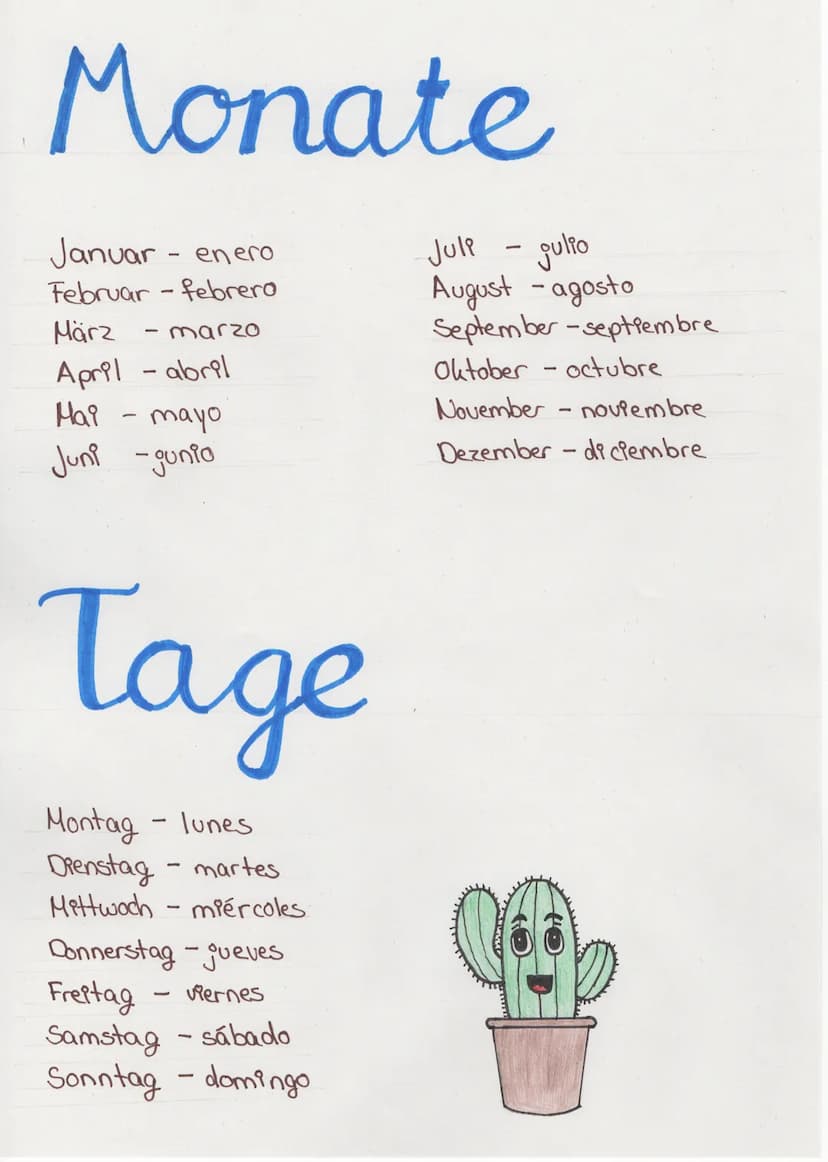 Monate
Januar - enero
Februar - febrero
März - marzo
April - abril
Mai - mayo
Juni - junio
Juli - julio
August - agosto
September - septiembre
Oktober - octubre
November - noviembre
Dezember - diciembre
Tage
Montag - lunes
Dienstag - martes
Mittwoch - miércoles
Donnerstag - jueves
Freitag - viernes
Samstag - sábado
Sonntag - domingo